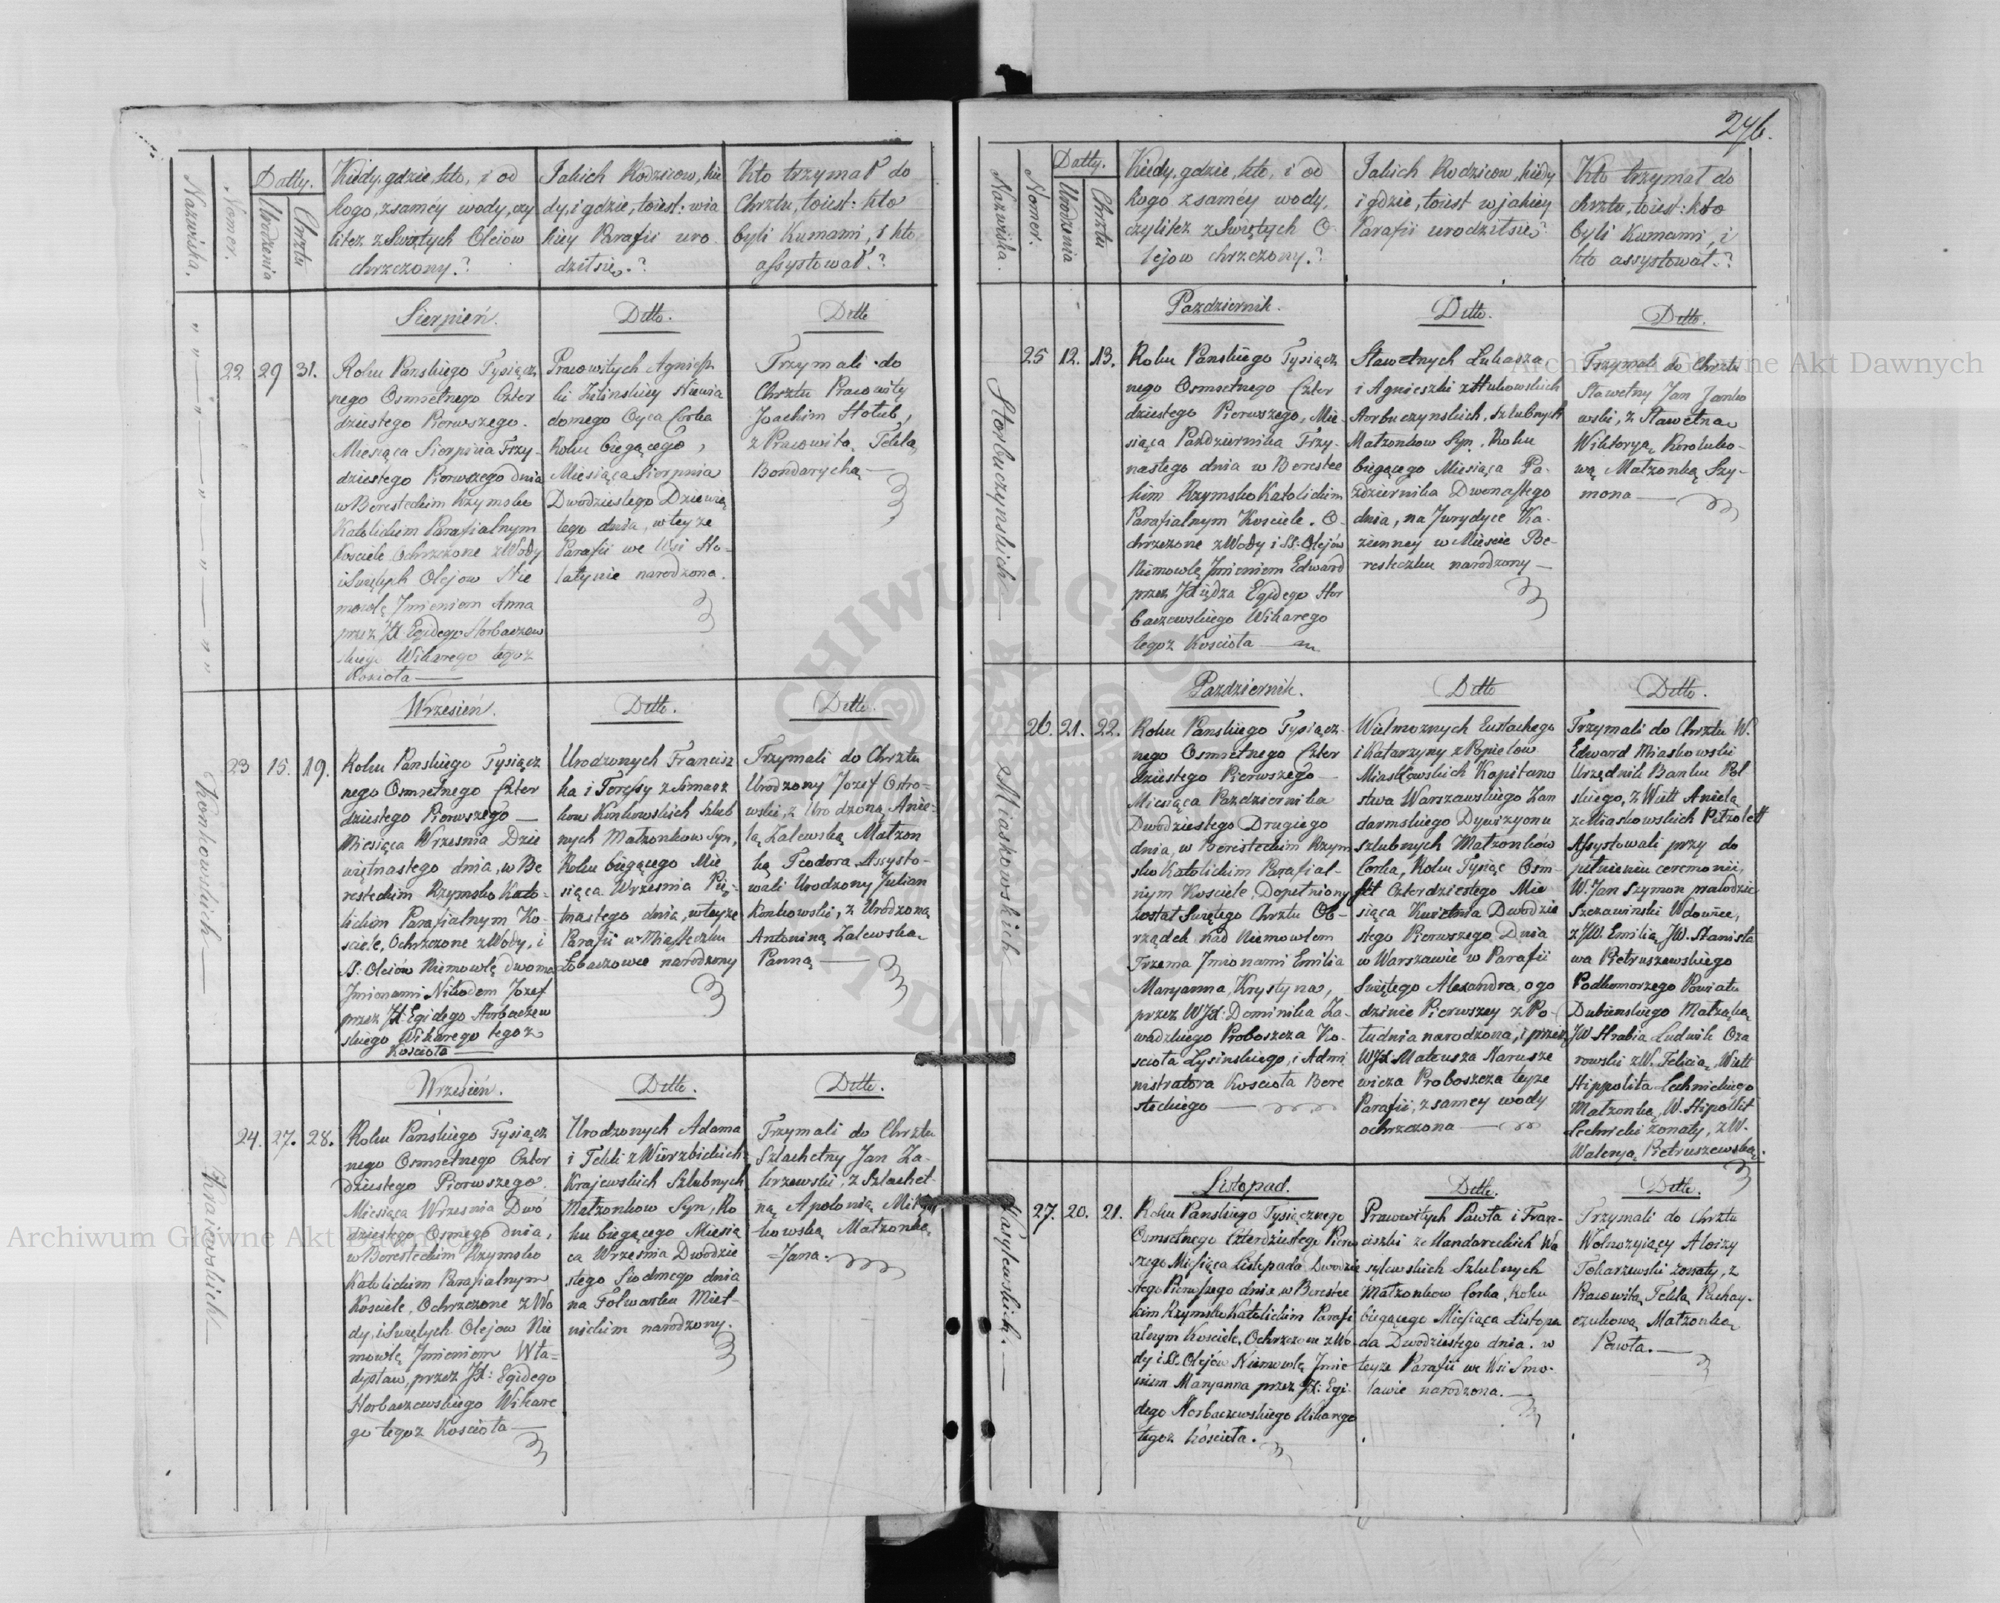 276.
Nazwiska.
Nomer.
Datty.
Urodzenia
Chrztu
Kiedy, gdzie, kto, i od
kogo, z saméy wody, czy
liteż z Swiętych Oleiow
chrzczony.?
Jakich Rodzicow, kie
dy, i gdzie, toiest: wia
kiéy Parafii uro
dziłsię.?
Kto trzymał do
Chrztu, toiest: kto
byli Kumami, i kto
assystował.?
Sierpień.
Detto.
Detto
22
29
31.
Roku Panskiego Tysiącz
nego Osmsetnego Czter
dziestego Pierwszego.
Miesiąca Sierpnia Trzy-
dziestego Pierwszego dnia
w Beresteckim Rzymsko
Katolickim Parafialnym
Kosciele Ochrzczone z Wody
i Swiętych Olejow Nie
mowlę Jmieniem Anna
przez Jł: Egidego Horbaczew
skiego Wikarego tegoz
Koscioła
Pracowitych Agniesz
ki Zielinskiey Niewia
domego Oyca Corka
Roku biegącego,
Miesiąca Sierpnia
Dwódziestego Dziewią
tego dnia, w teyze
Parafii we Wsi Ho-
latynie narodzona.
Trzymali do
Chrztu Pracowity
Joachim Hołub,
z Pracowitą Teklą
Bondarychą
Wrzesień.
Detto.
Detto.
Konkowskich
23
15.
19.
Roku Panskiego Tysiącz
nego Osmsetnego Czter
dziestego Pierwszego
Miesiąca Wrzesnia Dzie
więtnastego dnia, w Be
resteckim Rzymsko Kato-
lickim Parafialnym Ko-
sciele, Ochrzczone z Wody, i
S: Olejów Niemowlę dwoma
Jmionami Nikodem Jozef
przez Jł: Egidego Horbaczew
skiego Wikarego tegoz
Koscioła
Urodzonych Francisz
ka i Teressy z Simasz
kow Konkowskich Szlub
nych Małzonkow Syn,
Roku biegącego Mie
siąca Wrzesnia Pię-
tnastego dnia, w teyże
Parafii w Miasteczku
Łobaczowce narodzony
Trzymali do Chrztu
Urodzony Jozef Ostro-
wski, z Urodzoną Anie-
lą Zalewską Małzon
ką Teodora. Assysto-
wali Urodzony Julian
Konkowski, z Urodzoną
Antoniną Zalewską
Panną
Wrzesień.
Detto.
Detto.
Kraiewskich
24.
27.
28.
Roku Pańskiego Tysiącz
nego Osmsetnego Czter
dziestego Pierwszego
Miesiąca Wrzesnia Dwó
dziestego Osmego dnia,
w Beresteckim Rzymsko
Katolickim Parafialnym
Kosciele, Ochrzczone z Wo
dy, i Swiętych Olejow Nie
mowlę Jmieniem Wła=
dysław, przez Jł: Egidego
Horbaczewskiego Wikare
go tegoz Koscioła
Urodzonych Adama
i Tekli z Wierzbickich
Krajewskich Szlubnych
Małzonkow Syn, Ro
ku biegącego Miesią
ca Wrzesnia Dwódzie
stego Siodmego dnia
na Folwarku Miel-
nickim narodzony.
Trzymali do Chrztu
Szlachetny Jan Za-
krzewski, z Szlachet-
ną Apolonią
kowską Małzonką
=Jana.
Nazwiska.
Nomer.
Datty.
Urodzenia
Chrztu
Kiedy, gdzie, kto, i od
kogo z saméy wody,
czyliteż z Swiętych O-
lejow chrzczony.?
Jakich Rodzicow, kiedy
i gdzie, toiest w jakiéy
Parafii urodziłsię?
Kto trzymał do
chrztu, toiest: kto
byli Kumami, i
kto assystował.?
Pazdziernik.
Detto.
Detto.
Horbuczynskich
25
12.
13.
Roku Panskiego Tysiącz
nego Osmsetnego Czter
dziestego Pierwszego, Mie
siąca Pazdziernika Trzy-
nastego dnia w Berestec
kim Rzymsko Katolickim
Parafialnym Kosciele. O-
chrzczone z Wody i SS: Olejów
Niemowlę Jmieniem Edward
przez Xiędza Egidego Hor
baczewskiego Wikarego
tegoz Koscioła
Sławetnych Łukasza
i Agnieszki z Hukowskich
Horbuczynskich, Szlubnych
Małzonkow Syn. Roku
biegącego Miesiąca Pa-
zdziernika Dwonastego
dnia, na Jurydyce Ka-
zienney w Miescie Be-
resteczku narodzony
Trzymali do Chrztu
Sławetny Jan Janko
wski, z Sławetną
Wiktoryą Koroluko-
wą Małzonką Szy-
mona
Pazdziernik.
Detto
Detto.
Miaskowskich
26.
21.
22.
Roku Panskiego Tysiącz
nego Osmsetnego Czter
dziestego Pierwszego
Miesiąca Pazdziernika
Dwodziestego Drugiego
dnia, w Beresteckim Rzym
sko Katolickim Parafial-
nym Kosciele, Dopełniony
został Swiętego Chrztu Ob-
rządek nad Niemowlem
Trzema Jmionami Emilia
Maryanna, Krystyna,
przez WJł: Dominika Za-
wadzkiego Proboszcza Ko-
scioła Łysinskiego, i Admi
nistratora Koscioła Bere
steckiego
Wielmoznych Eustachego
i Katarzyny z Popielow
Miaskowskich Kapitano
stwa Warszawskiego Zan
darmskiego Dywizyonu
szlubnych Małzonków
Corka, Roku Tysiąc Osm-
set Czterdziestego Mie
siąca Kwietnia Dwodzie
stego Pierwszego Dnia
w Warszawie w Parafii
Swiętego Alexandra, o go
dzinie Pierwszey z Po-
łudnia narodzona, i przez
WJł: Mateusza Karusze
wicza Proboszcza teyze
Parafii, z samey wody
ochrzczona
Trzymali do Chrztu W.
Edward Miaskowski
Urzędnik Banku Pol
skiego, z Wielł Anielą
z Miaskowskich Pitzolett
Assystowali przy do
pełnieniu ceremonii,
W. Jan Szymon
Szczawinski Wdowiec,
z JW. Emilią JW. Stanisła
wa Pietruszewskiego
Podkomorzego Powiatu
Dubienskiego Małząką
JW. Hrabia Ludwik Oza
rowski z W. Felicią, Wielł
Hippolita Lechnickiego
Małzonką, W. Hipolit
Lechnicki zonaty, z W.
Waleryą Pietruszewską.
Listopad.
Detto.
Detto.
Wasylewskich.
27.
20.
21.
Roku Panskiego Tysiącznego
Osmsetnego Czterdziestego Pierw
szego Miesiąca Listopada Dwodzie
stego Pierwszego dnia, w Berestec
kim Rzymsko Katolickim Parafi
alnym Kosciele, Ochrzczone z Wo-
dy i SS. Olejów Niemowlę Jmie
niem Maryanna przez Jł: Egi-
dego Horbaczewskiego Wikarego
tegoz kościoła.
Pracowitych Pawła i Fran-
ciszki z Mandareckich Wa
sylewskich Szlubnych
Małzonkow Corka, Roku
biegącego Miesiąca Listopa
da Dwodziestego dnia, w
teyze Parafii we Wsi Smo-
lawie narodzona.
Trzymali do Chrztu
Wolnozyiący Aloizy
Tokarzewski zonaty, z
Pracowitą Teklą Puhay-
czukową Małzonką
Pawła.
Archiwum Główne Akt Dawnych
Archiwum Główne Akt Dawnych